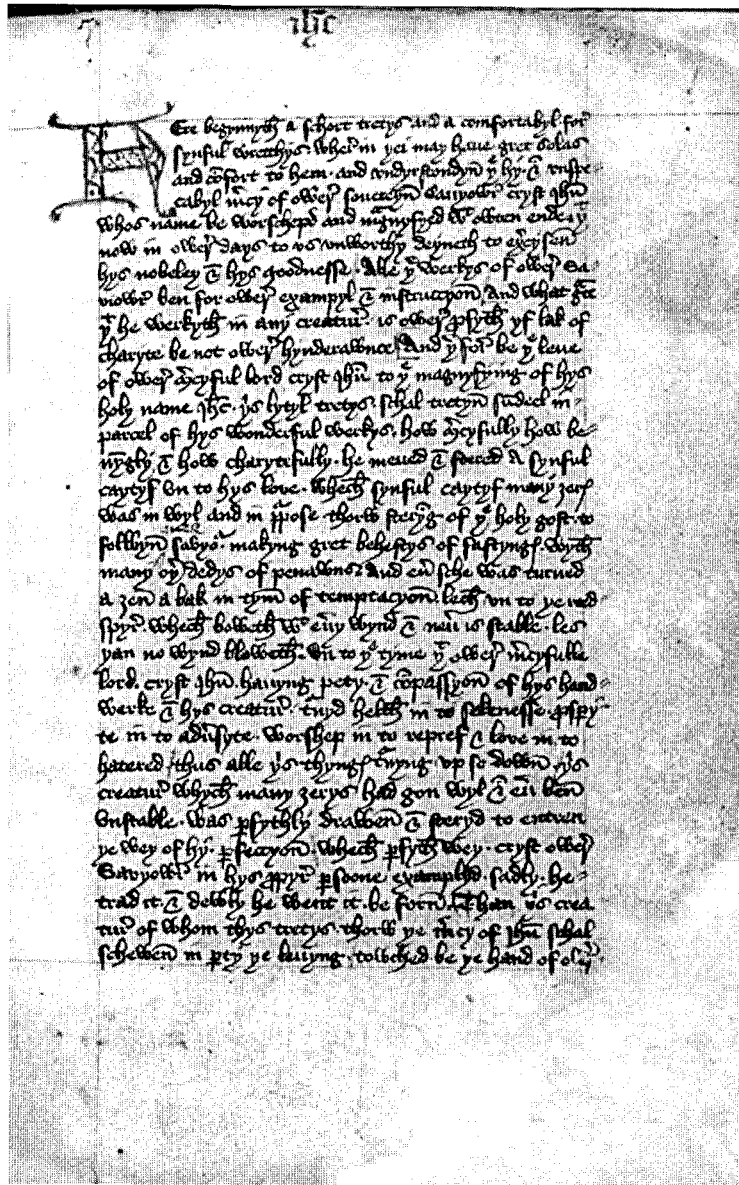 ihc
Here begynnyth a schort tretys and a comfortabyl for
synful wrecchys. wher in þei may haue gret solas
and cōfort to hem. and vndyrstondyn þe hy & vnspe
cabyl m̄cy of ower̄ souereyn Sauyowr̄ cryst ihū
whos name be worschepd and magnyfyed wt owten ende. þt
now in ower̄ days to vs vnworthy deyneth to exc̄ysen
hys nobeley & hys goodnesse. Alle þe werkys of ower̄ Sa-
uiowr̄ ben for ower̄ exampyl & instruccyon. And what gr̄ce
þt he werkyth in any creatur̄. is ower̄ ꝓfyth yf lak of
charyte be not ower̄ hynderawnce And þerfor̄ be þe leue
of ower̄ m̄cyful lord cryst ihū to þe magnyfying of hys
holy name ihc. þis lytyl tretys. schal tretyn sūdeel in-
parcel of hys wonderful werkys. how m̄cyfully how be-
nyngly & how charytefully. he meued & stered a synful
caytyf vn to hys loue. whech synful caytyf many ȝerꝭ
was in wyl and in pͣpose thorw steryg of þe holy gost. to
folwyn sauyor makyng gret behestys of fastyngꝭ. wyth
many oþr dedys of penawns. And eū sche was turned
a ȝen̄ a bak in tym of temptacyon. lech vn to þe red
spyr. whech boweth wt eūy wynd & neū is stable. les
þan no wynd bloweth. vn to þe tyme þt ower̄ m̄cyfulle
lord. cryst ihū. hauyng pety & cōpassyon of hys hand-
werke & hys creatur̄. t̄nyd helth in to sekenesse. ꝓspꝑi
te in to adūsyte. worshep in to repref & loue in to
hatered. thus alle þis thyngꝭ t̄nyng vp so down̄. þis
creatur̄ whych many ȝerys had gon wyl & eū ben
vnstable. was ꝑfythly drawen & steryd to entren
þe wey of hy. ꝑfeccyon. whech ꝑfyth wey. cryst ower̄
Sauyowr̄ in hys ꝓpyr̄ ꝑsoone examplyd. sadly. he-
trad it. & dewly he went it. be forn̄. Than þis crea
tur̄ of whom thys tretys. thorw þe m̄cy of ihū schal
schewen in ꝑty þe leuyng. towched be þe hand of owr̄